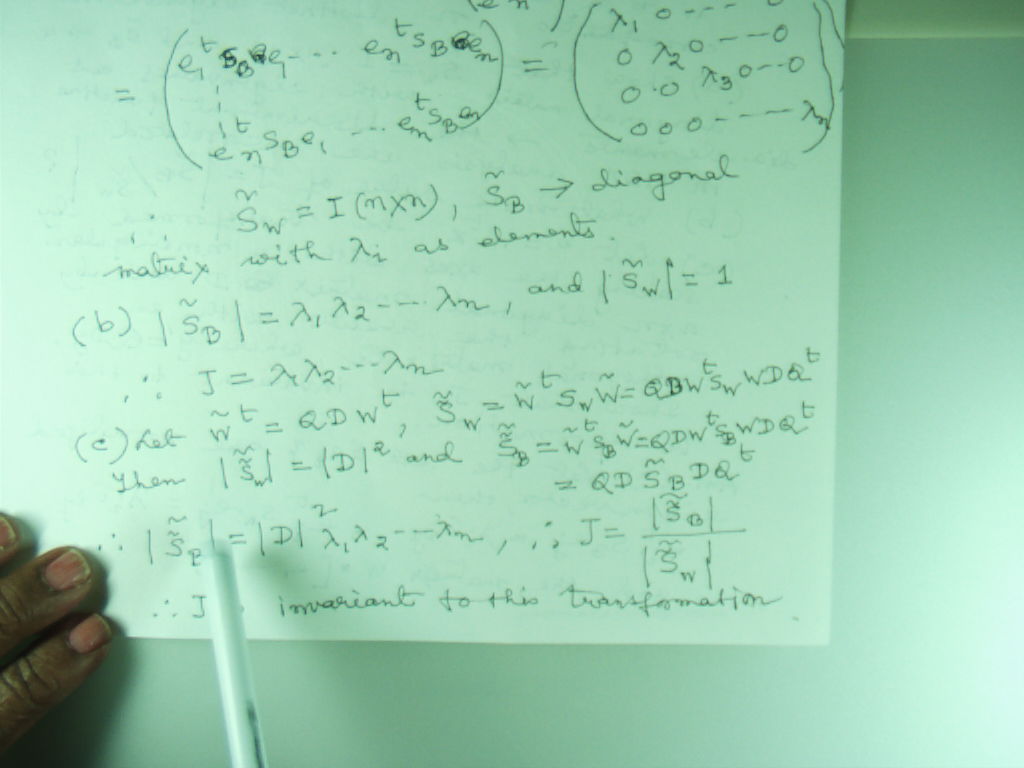 = ( e₁ᵗ S_B e₁ ---- eₙᵗ S_B eₙ ) = ( λ₁ 0 ---- 0
0 λ₂ 0 --- 0
0 0 λ₃ 0 -- 0
eₙᵗ S_B e₁ ... eₙᵗ S_B eₙ 0 0 0 ---- λₙ )
∴ S̃_W = I (n×n), S̃_B → diagonal
matrix with λᵢ as elements.
(b) | S̃_B | = λ₁ λ₂ --- λₙ, and | S̃_W | = 1
∴ J = λ₁ λ₂ --- λₙ
(c) Let W̃ᵗ = Q D Wᵗ, S̃̃_W = W̃ᵗ S_W W̃ = Q D Wᵗ S_W W D Qᵗ
Then | S̃̃_W | = |D|² and S̃̃_B = W̃ᵗ S_B W̃ = Q D Wᵗ S_B W D Qᵗ
= Q D S̃_B D Qᵗ
∴ | S̃̃_B | = |D|² λ₁ λ₂ --- λₙ, ∴ J = | S̃̃_B | / | S̃̃_W |
∴ J invariant to this transformation